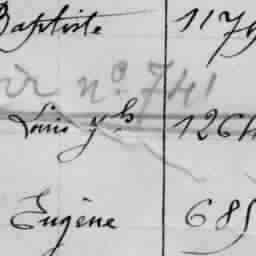 Baptiste 1179
Voir n° 741
Louis 1264
Eugène 685